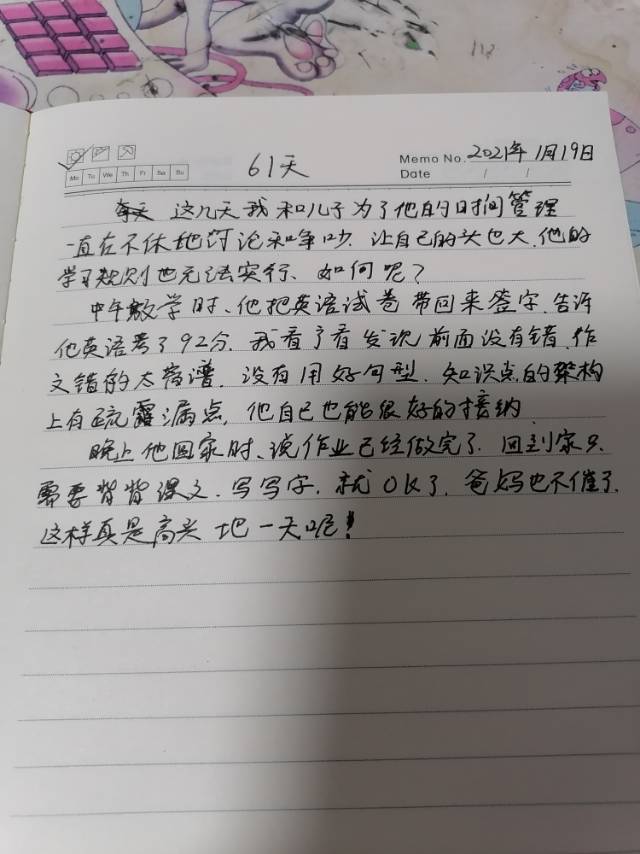 61天
Memo No. 2021年1月19日
Mo Tu We Th Fr Sa Su
Date / /
这几天我和儿子为了他的时间管理
一直在不休地讨论和争吵.让自己的头也大.他的
学习规则也无法实行、如何呢?
中午放学时、他把英语试卷带回来签字.告诉
他英语考了92分.我看了看发现前面没有错.作
文错的太离谱.没有用好句型.知识点的架构
上有疏露漏点.他自己也能很好的接纳
晚上他回家时、说作业已经做完了.回到家只.
需要背背课文.写写字.就OK了.爸妈也不催了.
这样真是高兴地一天呢!